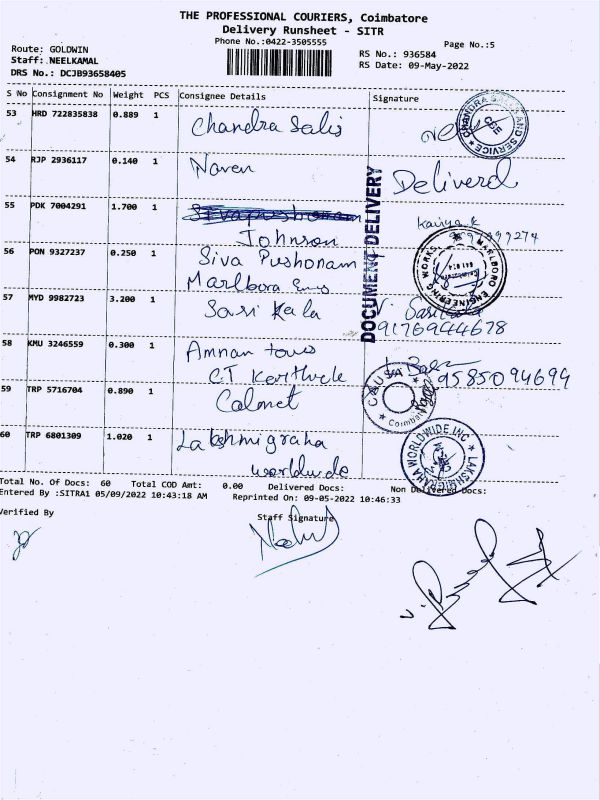 THE PROFESSIONAL COURIERS, Coimbatore
Delivery Runsheet - SITR
Phone No.:0422-3505555
Page No.:5
Route: GOLDWIN
Staff: NEELKAMAL
DRS No.: DCJB93658405
RS No.: 936584
RS Date: 09-May-2022
S No Consignment No Weight PCS Consignee Details Signature
53 HRD 722835838 0.889 1 Chandra Salis
CHANDRA AND SERVICE
CBE
54 RJP 2936117 0.140 1 Naven Deliverd
DOCUMENT DELIVERY
55 PDK 7004291 1.700 1
Johnson
56 PON 9327237 0.250 1 Siva Pushonam
Marlbora
MARLBORO ENGINEERING WORKS
57 MYD 9982723 3.200 1 Sasi Kala V. Sasikala
9176944678
58 KMU 3246559 0.300 1 Amnan
C.T Kerthvele 9585094694
59 TRP 5716704 0.890 1 Calonet
60 TRP 6801309 1.020 1 Lakshmigraha
worldwide
LAKSHMIGRAHA WORLDWIDE INC
Total No. Of Docs: 60 Total COD Amt: 0.00 Delivered Docs: Non Delivered Docs:
Entered By :SITRA1 05/09/2022 10:43:18 AM Reprinted On: 09-05-2022 10:46:33
Verified By
Staff Signature